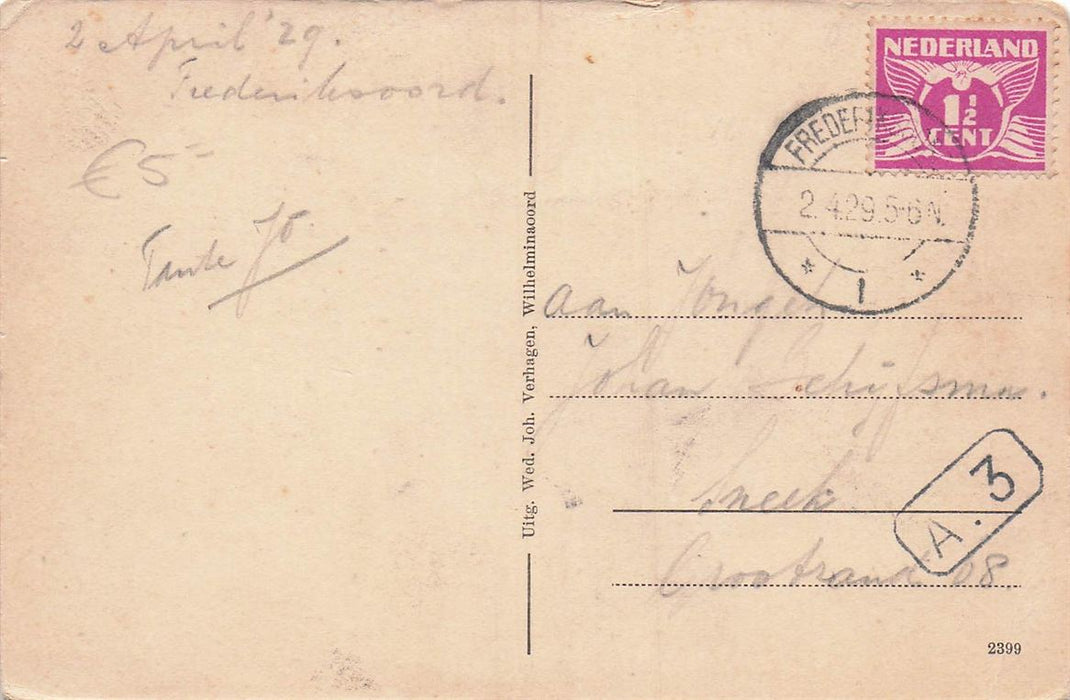 2 April '29.
Frederiksoord.
€5-
Tante Jo.
Uitg. Wed. Joh. Verhagen, Wilhelminaoord
NEDERLAND
1½
CENT
FREDERI
2.4.29.5-6N.
* 1 *
aan Jongeh.
Johan Schijfsma.
Sneek
A. 3
2399